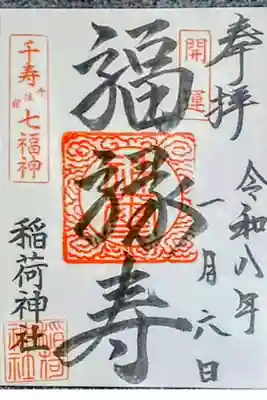 奉拝
開運
令和八年
一月六日
福禄寿
千寿
七福神
稲荷神社
稲荷
神社